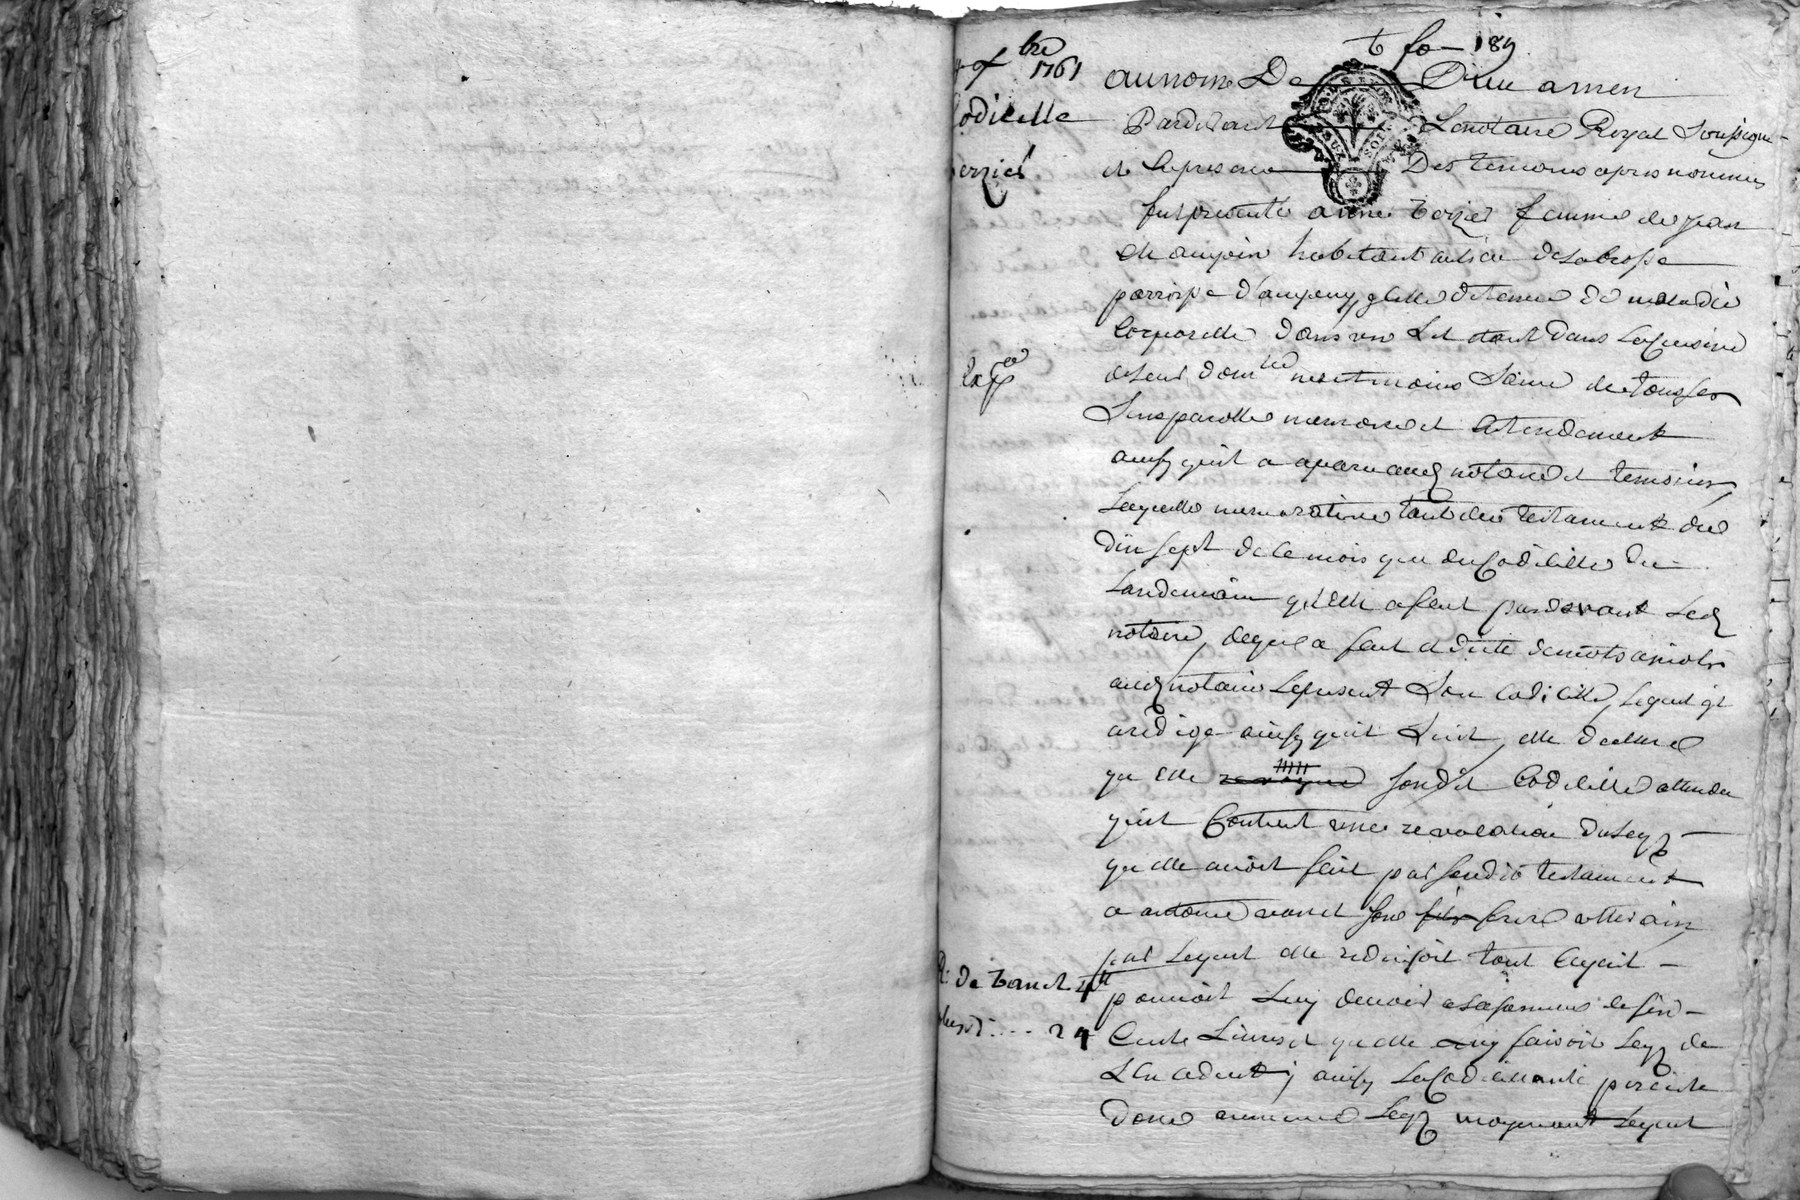 fo 189
bre
1761
odicelle
au nom De Dieu amen
Pardevant Le notaire Royal Soussigne
et En presence Des temoins apres nommes
fut presente anne femme de jean
habitant au lieu de la brosse
parroisse d'augeny, gissante detenue de maladie
Corporelle dans un Lit etant dans La Cuisine
de Leur domlle neantmoins Saine de tous ses
Sens parolle memoire et Entendement
ainsy quil a aparu audt notaire et temoins,
Laquelle memorative tant du testament du
dix sept de Ce mois que du Codicille du
Landemain quelle a fait pardevant Ledt
notaire, de gré a fait et dicté de mots a mots
audt notaire Le present Son Codicille, Lequel jay
redigé ainsy quil Suit, elle declare
que Elle revoque Sondit Codicille attendu
quil Contient une revocation du Legt
quelle avoit fait par Sondit testament
a antoine son fils frere utterain
par Lequel elle reduisoit tout Ce quil
pouvoit Luy devoir a la somme de six
Cents Livres et quelle Luy faisoit Legt de
L'Excedent; ainsy La Codicillante
donne au meme Legt moyenant Lequel
Expée
R. de 4tt
24